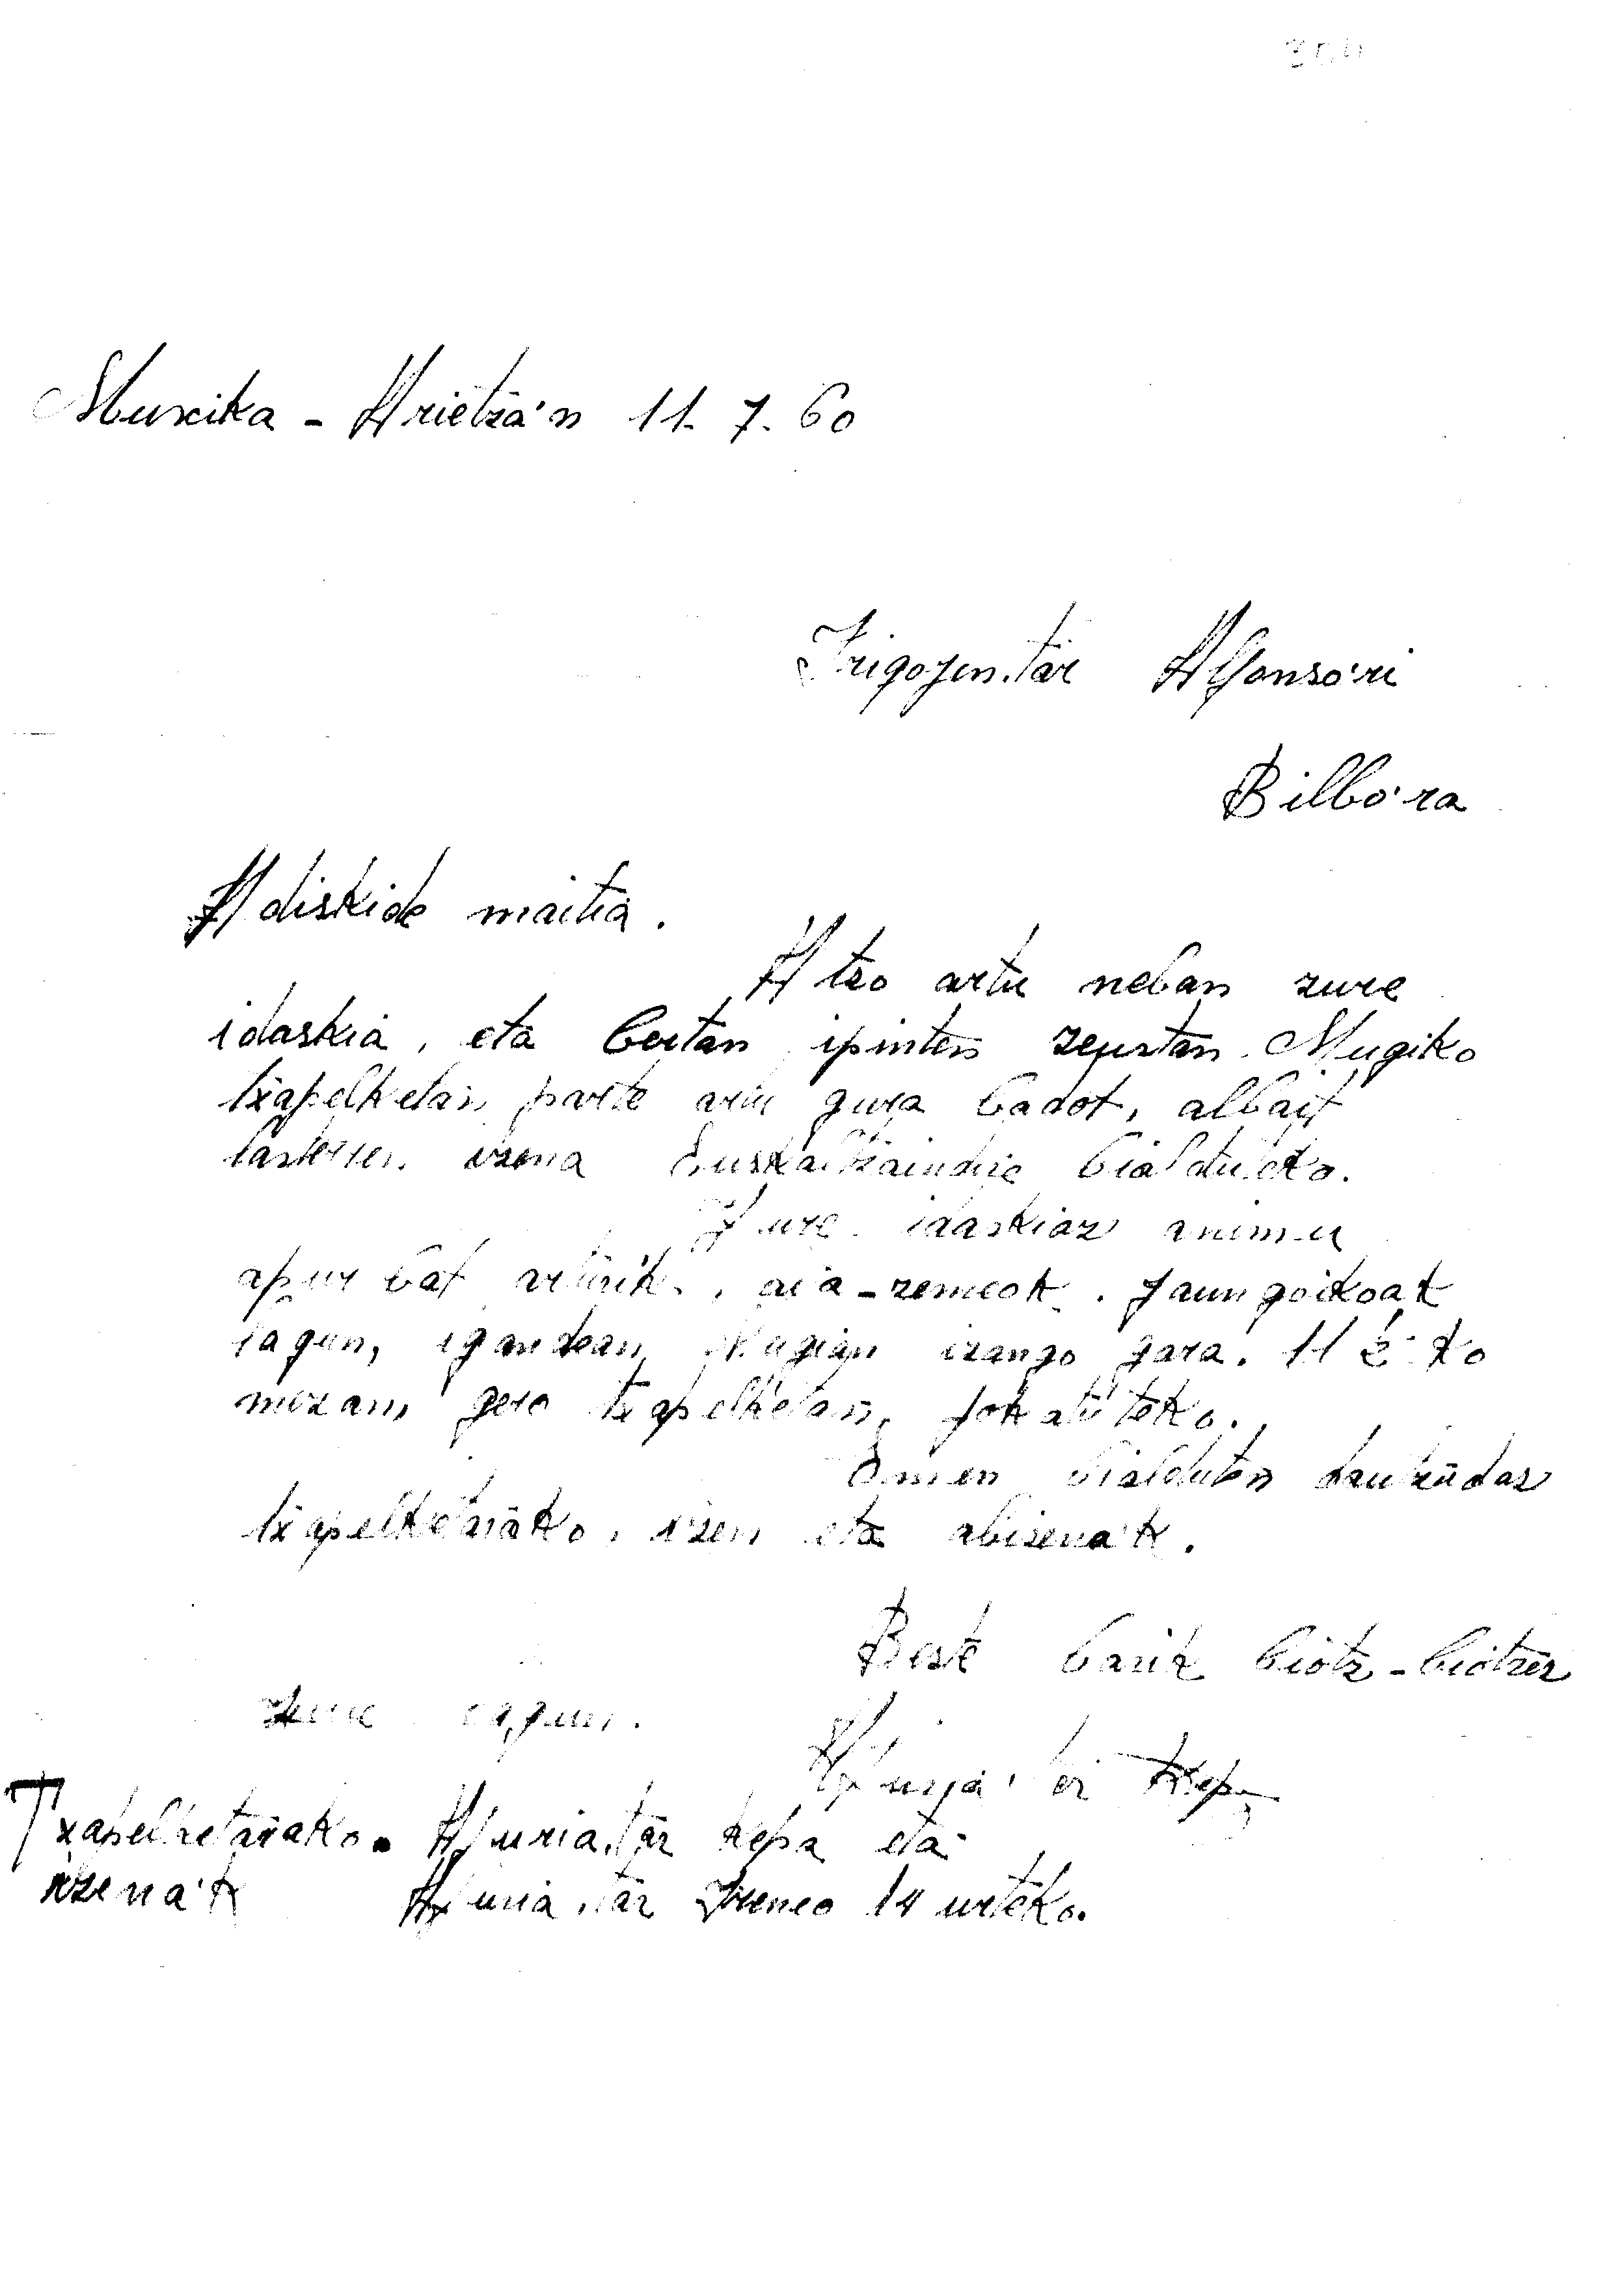 Muxika - Arietza'n 11. 7. 60
Irigoyen.tar Alfonso'ri
Bilbo'ra
Adiskide maitia.
Atzo artu neban zure
idazkia, eta bertan ipinten zeustan Mugiko
txapelketan parte artu gura badot, albait
lasterren izena Euskaltzaindire bialduteko.
Zure idazkiaz animu
apur bat arturik, aia-semeok. Jaungoikoak
lagun, igandean Mugian izango gara. 11 ½ ko
mezan, gero txapelketan, jokatuteko.
Emen bialduten dautzudaz
txapelketarako, izen eta abizenak.
Beste barik biotz-biotzez
zure lagun.
Kepa
Txapelketarako. Ajuria.tar Kepa eta
izena'k Ajuria.tar Ireneo 14 urteko.